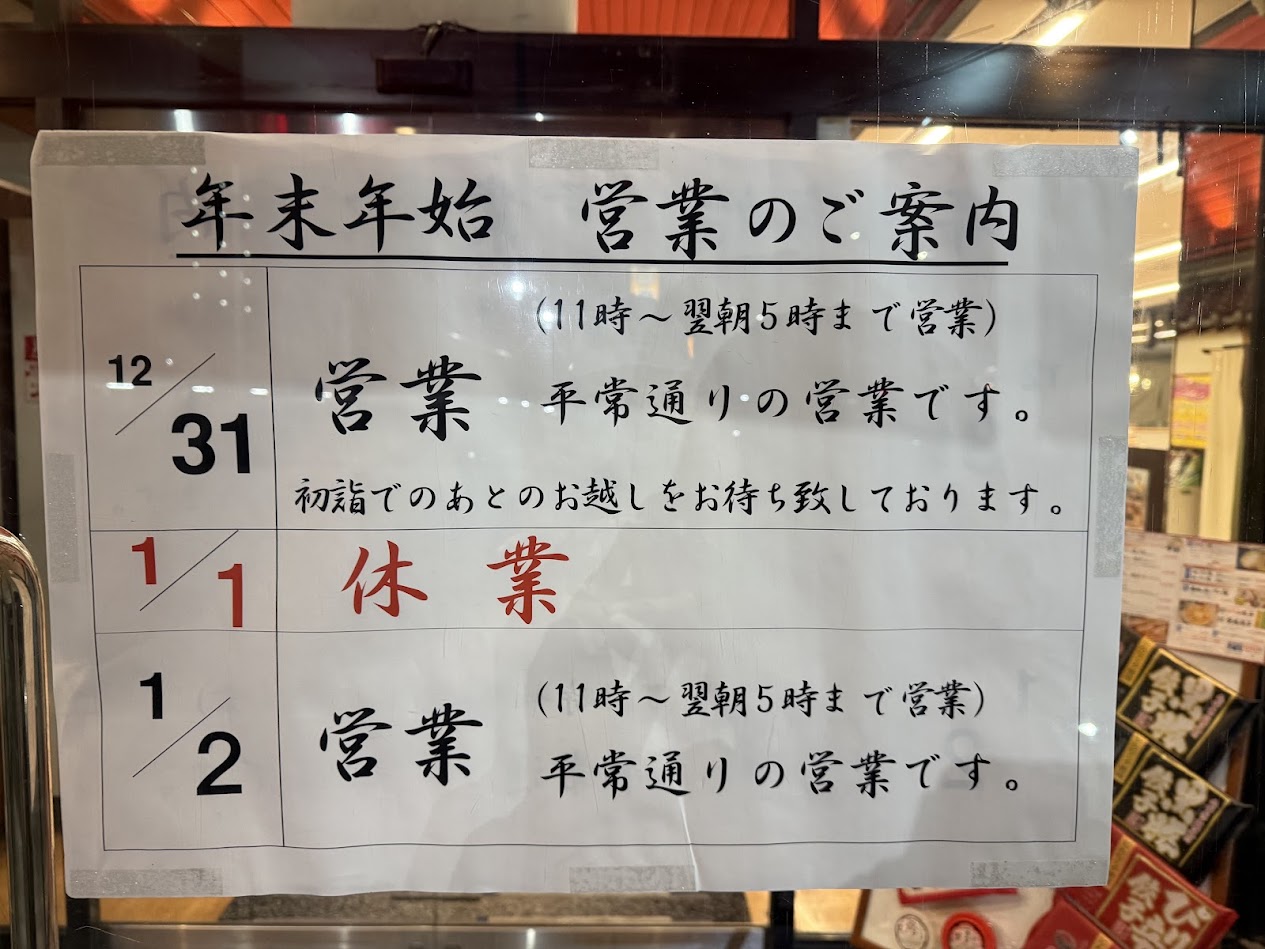 年末年始　営業のご案内
12/31
(11時～翌朝5時まで営業)
営業　平常通りの営業です。
初詣でのあとのお越しをお待ち致しております。
1/1
休業
1/2
(11時～翌朝5時まで営業)
営業　平常通りの営業です。